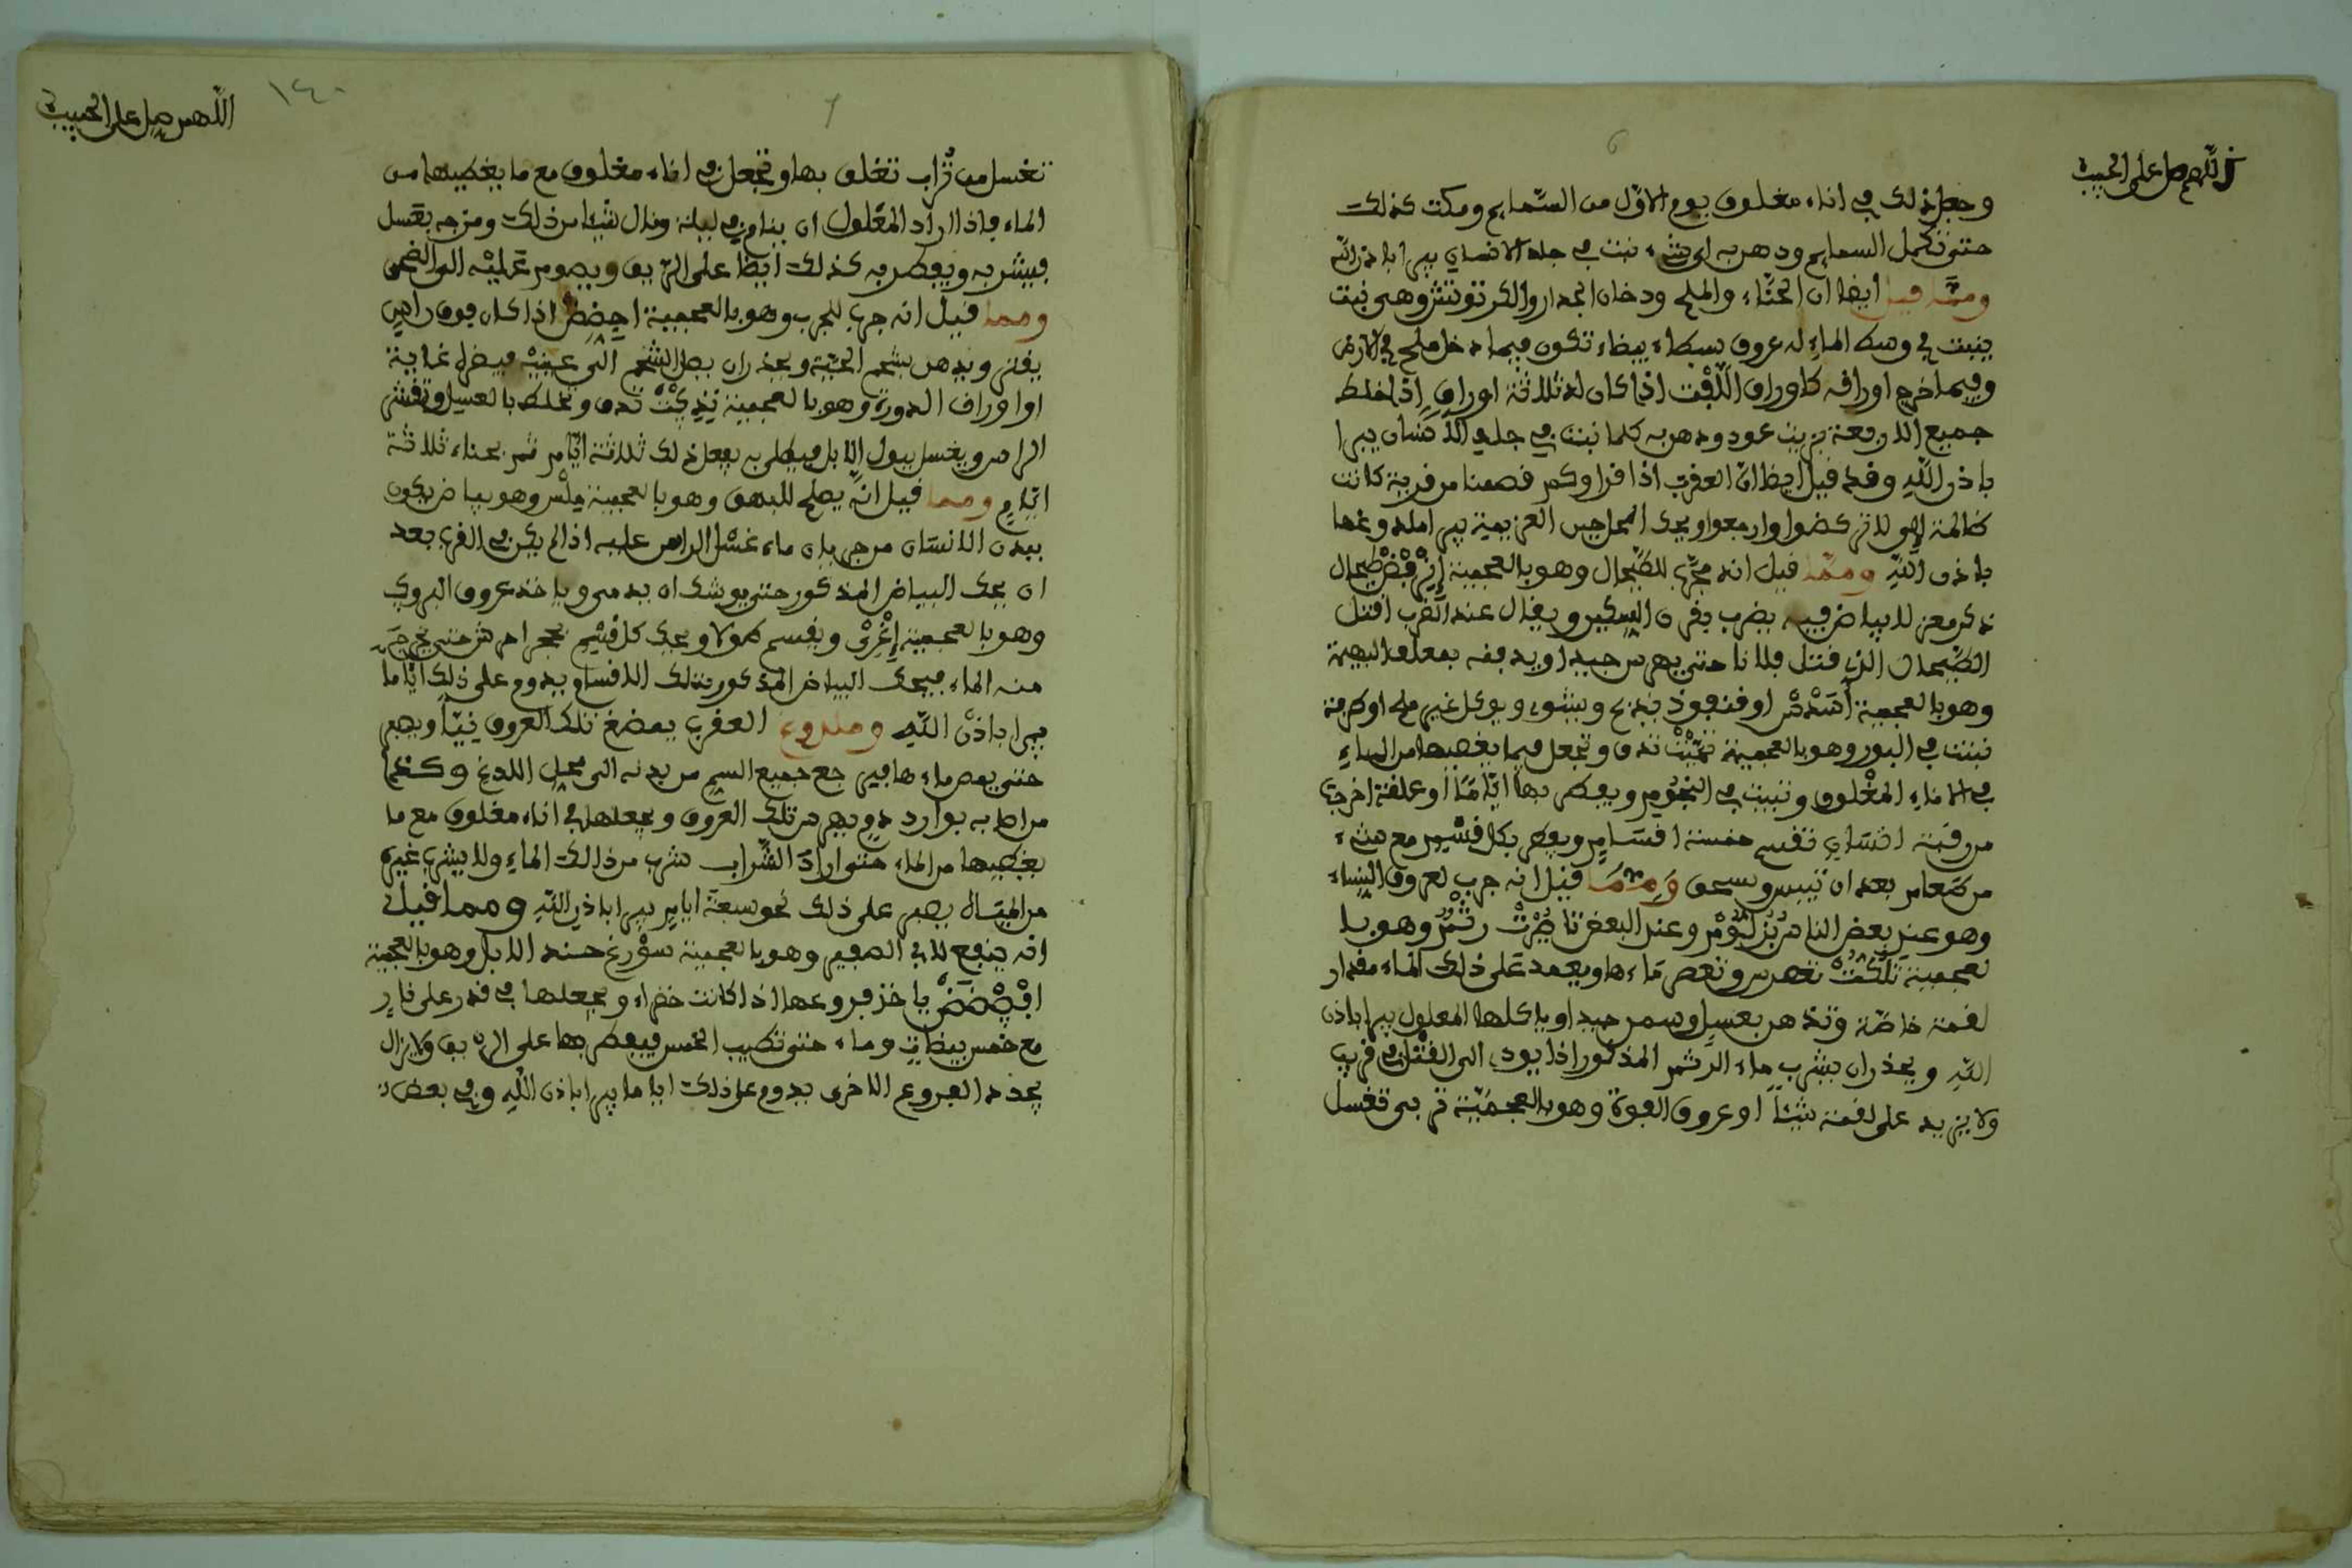 اللهم صل على الحبيب
6
وجعل ذلك في اناء مغلوق يوم الاول من السمايم ومكث كذلك
حتى تكمل السمايم ودهن به اي شيء نبت في جلد الانسان يبرا باذن الله
ومما قيل ايضا ان الحناء والملح ودخان الجدار والكرتوتش وهي نبت
ينبت في وسط الماء له عروق بيضاء تكون فيما دخل ملح في الارض
وفيما خرج اوراقه كاوراق اللفت اذا كان له ثلاثة اوراق اذا خلط
جميع الاربعة بزيت عود ودهن به كلما نبت في جلد الانسان يبرا
باذن الله وقد قيل ايضا ان العقرب اذا قرا وكم قصمنا من قرية كانت
ظالمة الى لا تركضوا وارجعوا ويحك المحاجين العزيمة يبرا ملدوغها
باذن الله ومما قيل انه مجرب للطيحال وهو بالعجمية طيحال
ذكر معز لا بياض فيه يضرب بقرن السكين ويقال عند الضرب اقتل
الطيحال الذي قتل فلانا حتى يهرس جيدا او يدفنه بمعلف البهيمة
وهو بالعجمية او قنفوذ يذبح ويشوى ويوكل بغير ملح او كرمة
نبتت في البور وهو بالعجمية تدق وتجعل فيما يغطيها من الماء
في الاناء المغلوق وتبيت في النجوم ويفطر بها اياما او علقة اخرجت
من رقبة انسان تقسم خمسة اقسام ويفطر بكل قسم مع شيء
من طعام بعد ان تيبس وتسحق ومما قيل انه جرب لعروق النساء
وهو عند بعض الناس وعند البعض وهو با
لعجمية تهرس وتعصر ماءها ويعمد على ذلك الماء مقدار
لقمة خاصة وتدهن بعسل وسمن جيد او ياكلها المعلول يبرا باذن
الله ويحذر ان يشرب ماء الرشم المذكور اذا يودي الى القتل في قريب
ولا يزيد على لقمة شيئا او عروق الفوة وهو بالعجمية تغسل
اللهم صل على الحبيب
١٤٠
7
تغسل من تراب تغلق بها وتجعل في اناء مغلوق مع ما يغطيها من
الماء فاذا اراد المعلول ان ينام في ليلة ونال شيئا من ذلك ومزجه بعسل
فيشربه ويفطر به كذلك ايضا على الريق ويصوم عليه الى الضحى
ومما قيل انه جرب للجرب وهو بالعجمية اذا كان فوق راس
يقلى ويدهن بشحم الحية ويحذر ان يصل الشحم الى عينيه فيضره غاية
او اوراق الدورة وهو بالعجمية تدق وتخلط بالعسل وتقشر
الراس ويغسل ببول الابل فيطلى به يفعل ذلك ثلاثة ايام ثم بحناء ثلاثة
ايام ومما قيل انه يصلح للبهق وهو بالعجمية وهو بياض يكون
ببدن الانسان من جريان ماء غسل الراس عليه اذا لم يكن في القرب بعد
ان يحك البياض المذكور حتى يوشك ان يدمى وياخذ عروق البروق
وهو بالعجمية ويقسم طولا ويحك كل قسم بحجر احرش حتى يخرج
منه الماء فيحك البياض المذكور بتلك الاقسام ويدوم على ذلك اياما
يبرا باذن الله وملدوغ العقرب يمضغ تلك العروق نيئا ويصبر
حتى يمص ماءها فيرجع جميع السم من بدنه الى محل اللدغ وكذا
من اصابه بوارد دم يهرس تلك العروق ويجعلها في اناء مغلوق مع ما
يغطيها من الماء متى اراد الشراب شرب من ذلك الماء ولا يشرب غيره
من المياه يصبر على ذلك نحو سبعة ايام يبرا باذن الله ومما قيل
انه ينفع لابي الصفير وهو بالعجمية حسند الابل وهو بالعجمية
ياخذ فروعها اذا كانت خضراء ويجعلها في قدر على نار
مع خمس بيضات وماء حتى تطيب الخمس فيفطر بها على الريق ولا يزال
يجدد الفروع الاخرى يدوم على ذلك اياما يبرا باذن الله وفي بعض